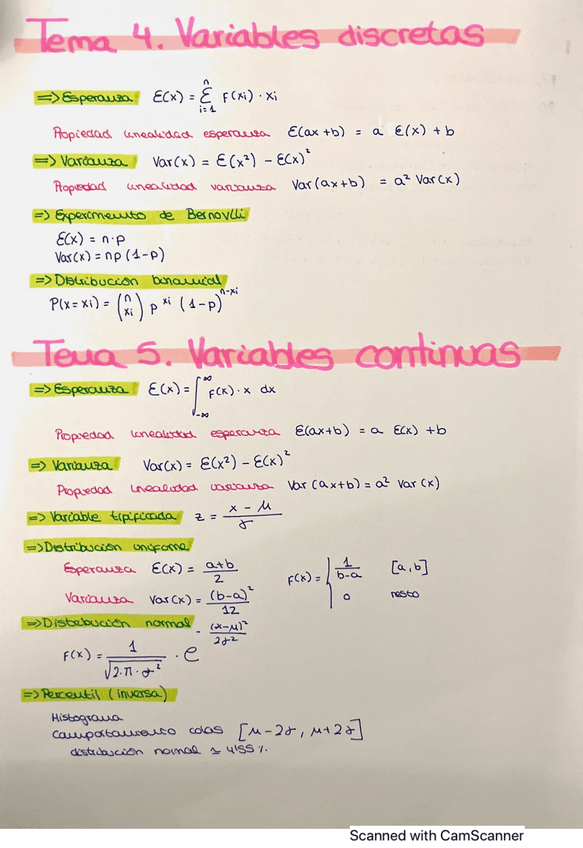 Tema 4. Variables discretas
=> Esperanza E(x) = Σ_{i=1}^{n} F(xi) · xi
Propiedad linealidad esperanza E(ax+b) = a E(x) + b
=> Varianza Var(x) = E(x²) - E(x)²
Propiedad linealidad varianza Var(ax+b) = a² Var(x)
=> Experimento de Bernoulli
E(x) = n·p
Var(x) = np (1-p)
=> Distribución binomial
P(x = xi) = (n xi) p^xi (1-p)^n-xi
Tema 5. Variables continuas
=> Esperanza E(x) = ∫_{-∞}^{∞} F(x) · x dx
Propiedad linealidad esperanza E(ax+b) = a E(x) + b
=> Varianza Var(x) = E(x²) - E(x)²
Propiedad linealidad varianza Var (ax+b) = a² Var (x)
=> Variable tipificada z = (x - μ)/σ
=> Distribución uniforme
Esperanza E(x) = (a+b)/2 F(x) = { 1/(b-a) [a,b]
Varianza Var(x) = (b-a)²/12 0 resto
=> Distribución normal
F(x) = 1/√(2·π·σ²) · e^-(x-μ)²/2σ²
=> Percentil (inversa)
Histograma
Comportamiento colas [μ-2σ, μ+2σ]
distribución normal ≃ 4'55 %.
Scanned with CamScanner